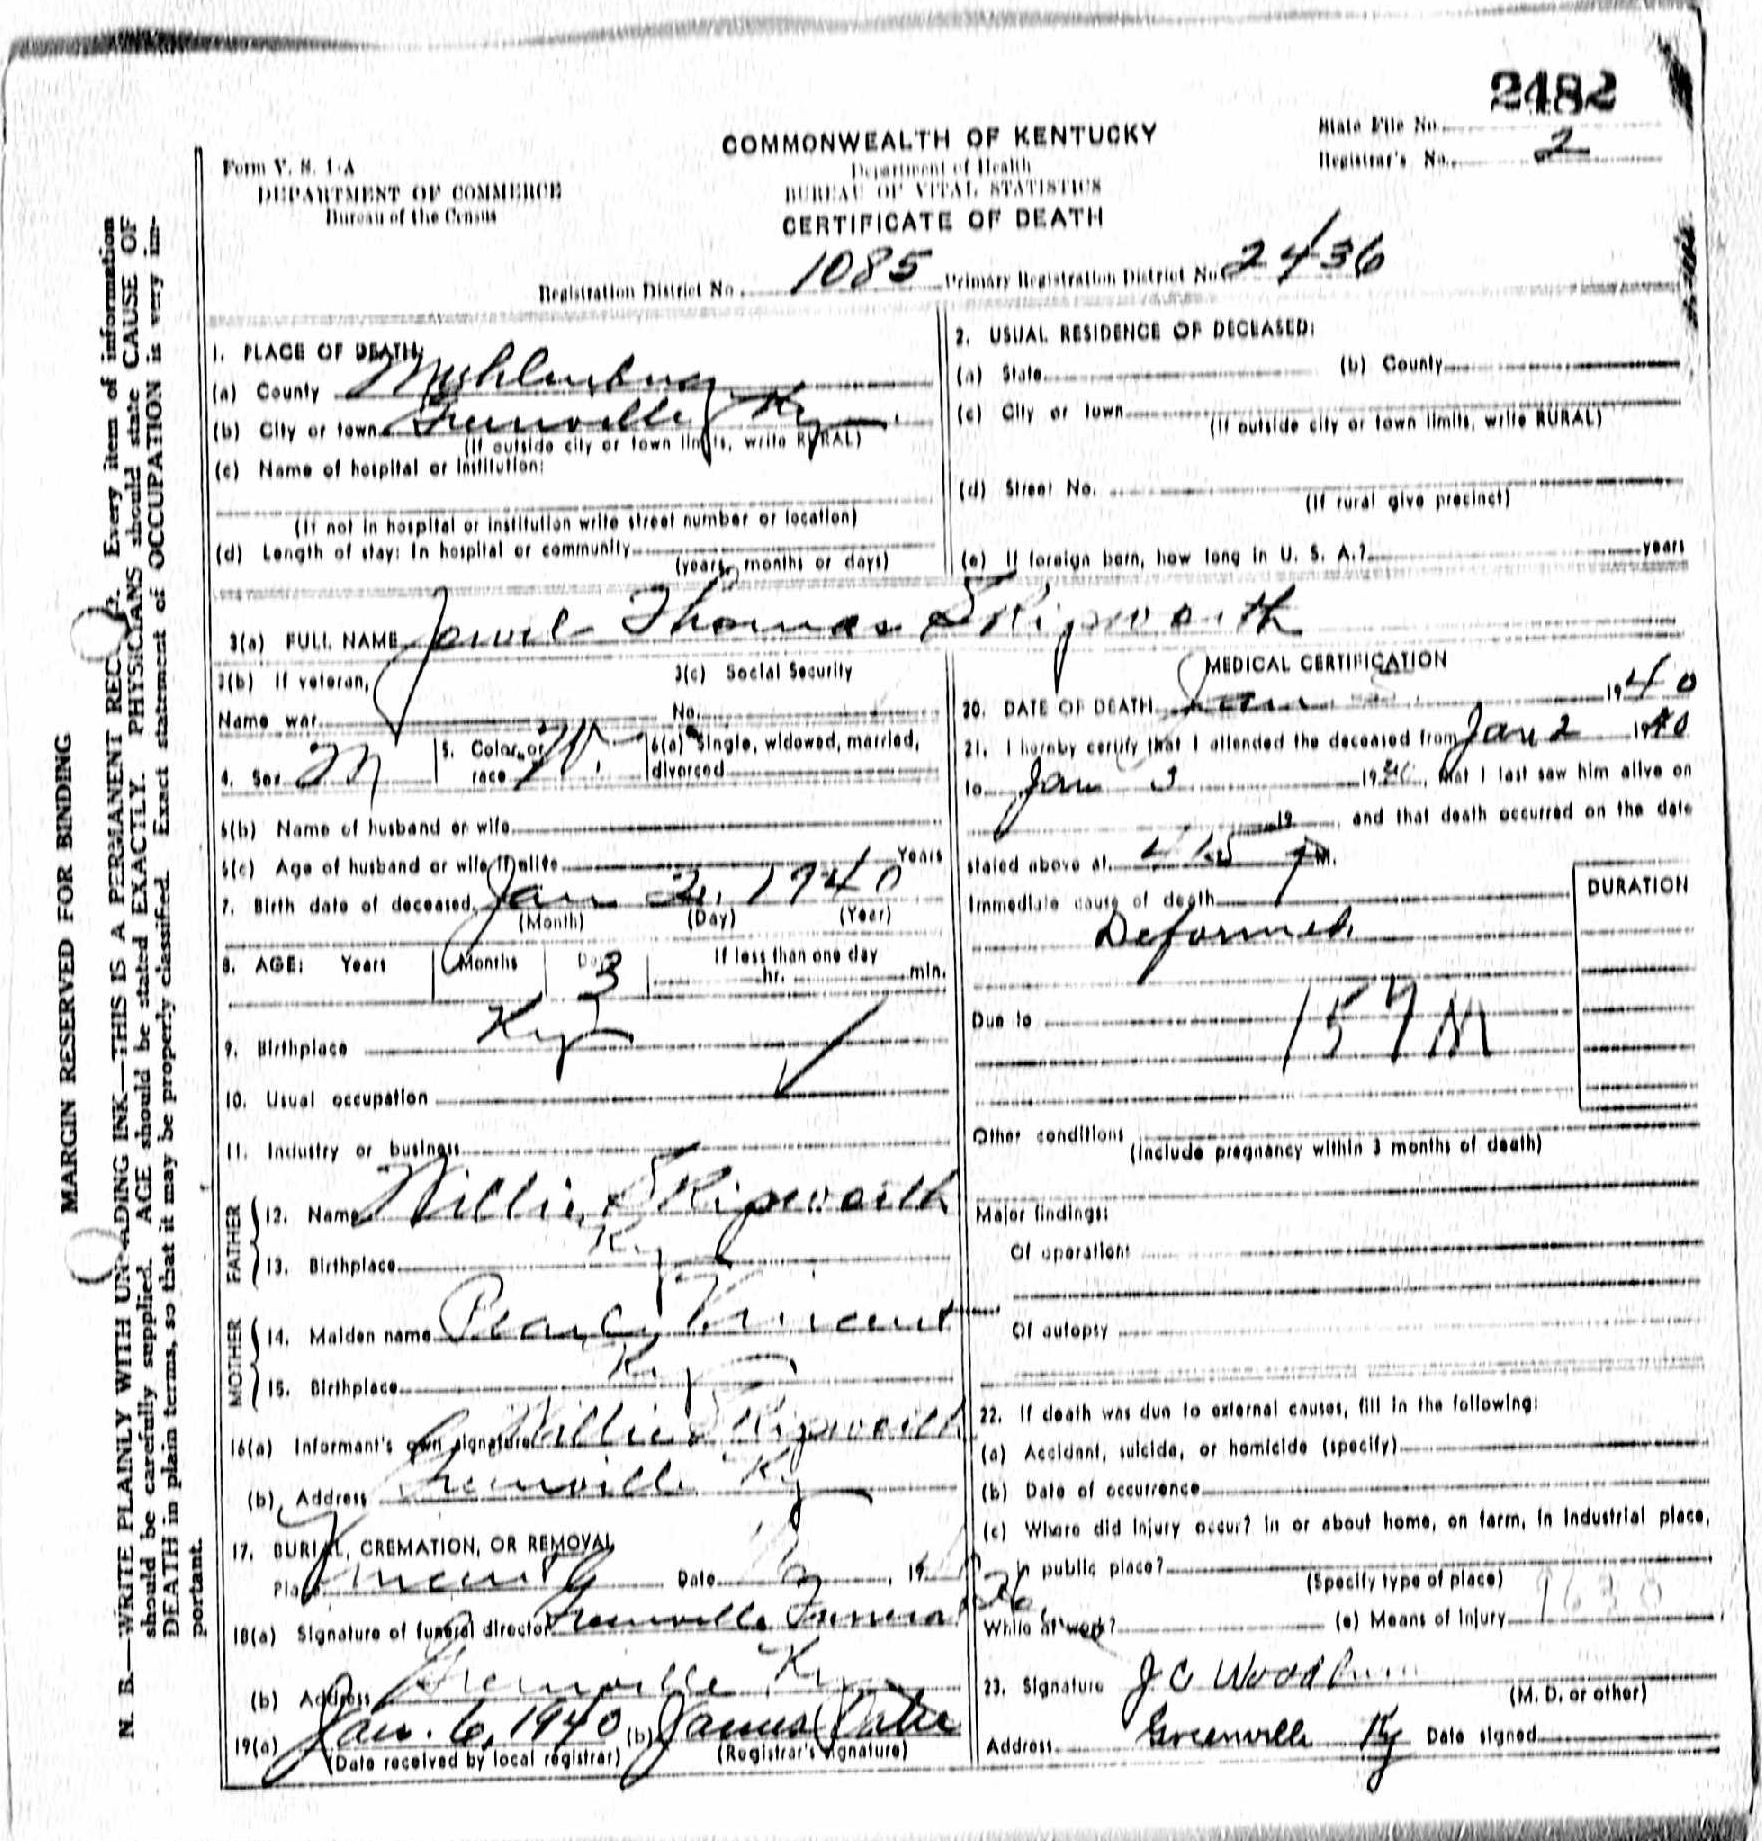 2482
State File No.
Registrar's No. 2
COMMONWEALTH OF KENTUCKY
Department of Health
BUREAU OF VITAL STATISTICS
CERTIFICATE OF DEATH
Form V. S. 1-A
DEPARTMENT OF COMMERCE
Bureau of the Census
Registration District No. 1085 Primary Registration District No. 2436
MARGIN RESERVED FOR BINDING
N. B.—WRITE PLAINLY WITH UNFADING INK—THIS IS A PERMANENT RECORD. Every item of information
should be carefully supplied. AGE should be stated EXACTLY. PHYSICIANS should state CAUSE OF
DEATH in plain terms, so that it may be properly classified. Exact statement of OCCUPATION is very im-
portant.
1. PLACE OF DEATH:
(a) County Muhlenburg
(b) City or town Greenville, Ky.
(If outside city or town limits, write RURAL)
(c) Name of hospital or institution:
(If not in hospital or institution write street number or location)
(d) Length of stay: In hospital or community
(years, months or days)
2. USUAL RESIDENCE OF DECEASED:
(a) State (b) County
(c) City or town
(If outside city or town limits, write RURAL)
(d) Street No.
(If rural give precinct)
(e) If foreign born, how long in U. S. A.? years
3(a) FULL NAME Jewel Thomas Skipworth
3(b) If veteran, 3(c) Social Security
Name war No.
4. Sex M 5. Color or race W. 6(a) Single, widowed, married, divorced
6(b) Name of husband or wife
6(c) Age of husband or wife if alive Years
7. Birth date of deceased Jan 2, 1940
(Month) (Day) (Year)
8. AGE: Years Months Days 3 If less than one day
hr. min.
9. Birthplace Ky
10. Usual occupation
11. Industry or business
FATHER
12. Name Willie Skipworth
13. Birthplace Ky
MOTHER
14. Maiden name Vincent
15. Birthplace Ky
16(a) Informant's own signature Willie Skipworth
(b) Address Greenville Ky
17. BURIAL, CREMATION, OR REMOVAL
Place Date , 19
18(a) Signature of funeral director Greenville Funeral
(b) Address Greenville Ky
19(a) Jan. 6, 1940 (b) James
(Date received by local registrar) (Registrar's signature)
MEDICAL CERTIFICATION
20. DATE OF DEATH Jan 1940
21. I hereby certify that I attended the deceased from Jan 2 1940
to Jan 3 1940, that I last saw him alive on
19 , and that death occurred on the date
stated above at M.
Immediate cause of death
DURATION
Deformed.
Due to
157M
Other conditions
(include pregnancy within 3 months of death)
Major findings:
Of operations
Of autopsy
22. If death was due to external causes, fill in the following:
(a) Accident, suicide, or homicide (specify)
(b) Date of occurrence
(c) Where did injury occur? In or about home, on farm, in industrial place,
in public place?
(Specify type of place)
While at work? (e) Means of injury
23. Signature J C Woodburn
(M. D. or other)
Address Greenville Ky Date signed